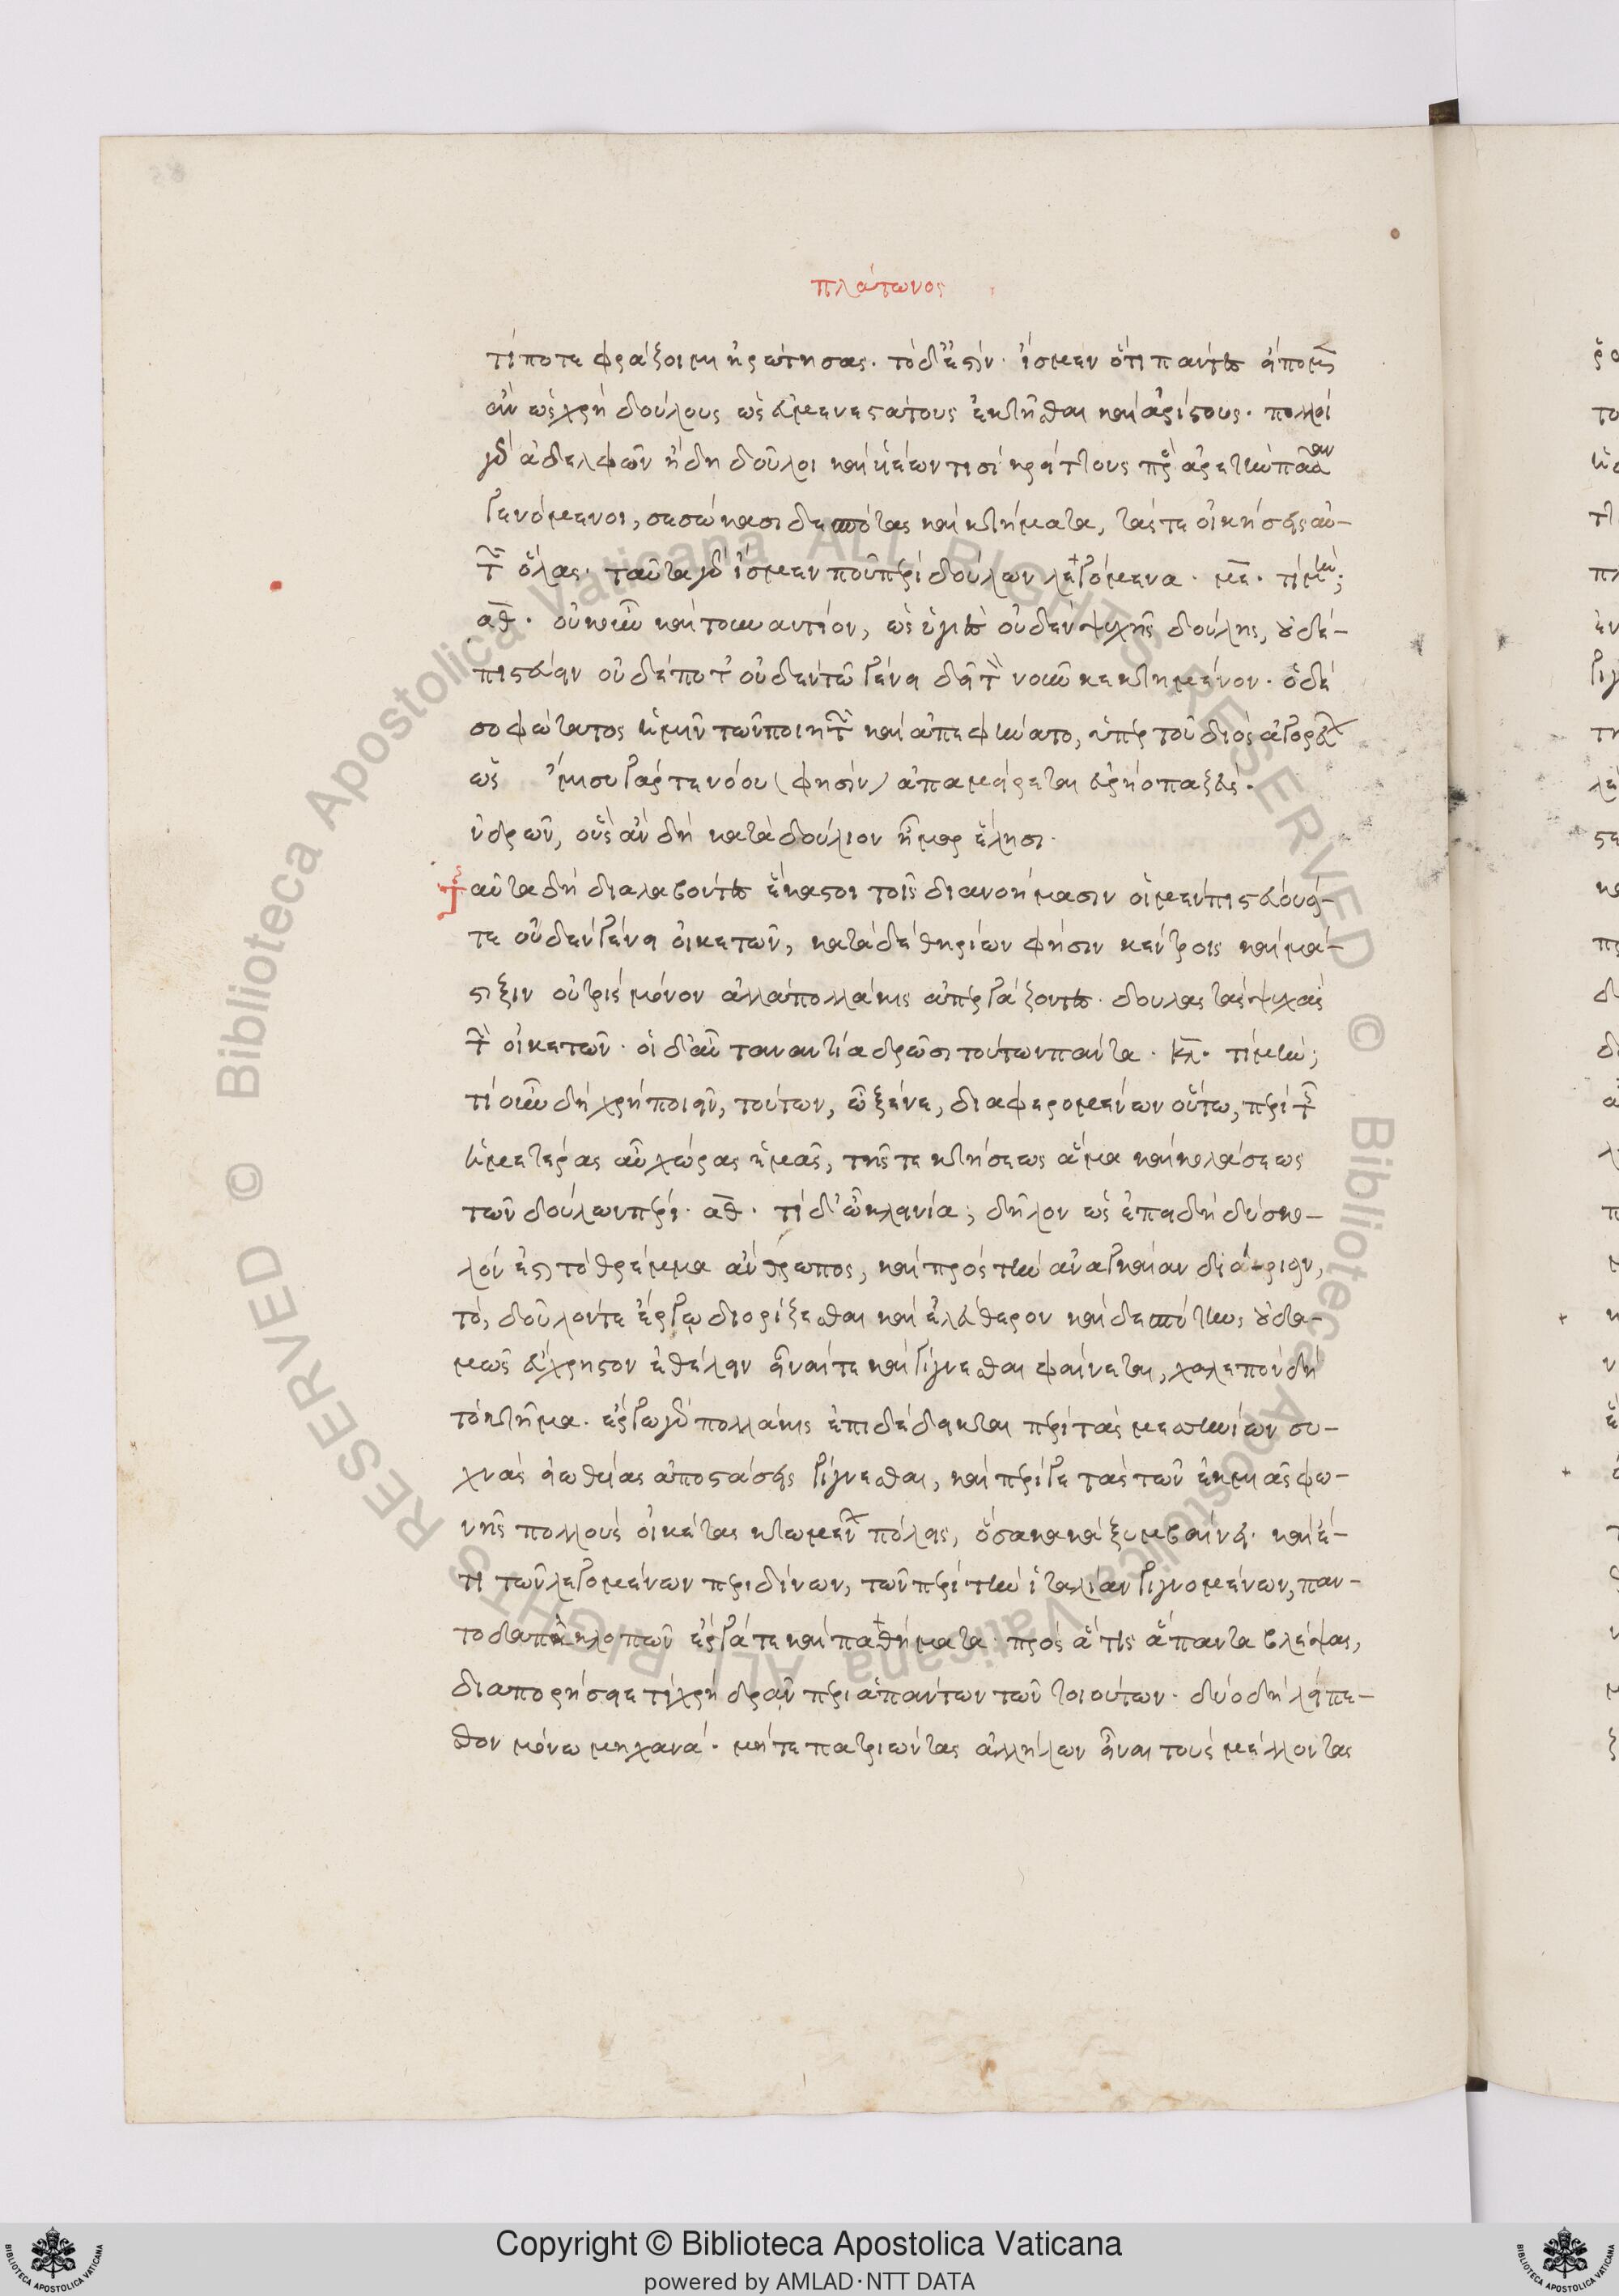 πλάτωνος
τί ποτε φράζοιμι ἠρώτησας. τὸ δ' ἐστίν. ἴσμεν ὅτι πάντες εἴποιμεν
ἂν ὡς χρὴ δούλους ὡς εὐμενεστάτους ἐκτῆσθαι καὶ ἀρίστους. πολλοὶ
γὰρ ἀδελφῶν ἤδη δοῦλοι καὶ ὑέων τισὶ κρείττους πρὸς ἀρετὴν πᾶσαν
γενόμενοι, σεσώκασι δεσπότας καὶ κτήματα, τάς τε οἰκήσεις αὐ-
τῶν ὅλας. ταῦτα γὰρ ἴσμεν που περὶ δούλων λεγόμενα. με. τί μήν;
αθ. οὐκοῦν καὶ τοὐναντίον, ὡς ὑγιὲς οὐδὲν ψυχῆς δούλης, οὐδὲ
πιστεύειν οὐδέποτ' οὐδὲν τῷ γένει δεῖ τὸν νοῦν κεκτημένον. ὁ δὲ
σοφώτατος ἡμῖν τῶν ποιητῶν καὶ ἀπεφήνατο, ὑπὲρ τοῦ διὸς ἀγορεύων
ὡς ἥμισυ γάρ τε νόου (φησὶν) ἀπαμείρεται εὐρύοπα ζεύς.
ἀνδρῶν, οὓς ἂν δὴ κατὰ δούλιον ἦμαρ ἕλησι.
ταῦτα δὴ διαλαβόντες ἕκαστοι τοῖς διανοήμασιν οἱ μὲν πιστεύουσί-
τε οὐδὲν γένει οἰκετῶν, κατὰ δὲ θηρίων φύσιν κέντροις καὶ μά-
στιξιν οὐ τρὶς μόνον ἀλλὰ πολλάκις ἀπεργάζονται. δούλας τὰς ψυχὰς
τῶν οἰκετῶν. οἱ δ' αὖ τἀναντία δρῶσι τούτων πάντα. κλ. τί μήν;
τί οὖν δὴ χρὴ ποιεῖν, τούτων, ὦ ξένε, διαφερομένων οὕτω, περὶ τῆς
ἡμετέρας αὖ χώρας ἡμᾶς, τῆς τε κτήσεως ἅμα καὶ κολάσεως
τῶν δούλων πέρι. αθ. τί δ' ὦ κλεινία; δῆλον ὡς ἐπειδὴ δύσκο-
λόν ἐστι τὸ θρέμμα ἄνθρωπος, καὶ πρὸς τὴν ἀναγκαίαν διόρισιν,
τό, δοῦλόν τε ἔργῳ διορίζεσθαι καὶ ἐλεύθερον καὶ δεσπότην, οὐδα-
μῶς εὔχρηστον ἐθέλειν εἶναί τε καὶ γίγνεσθαι φαίνεται, χαλεπὸν δὴ
τὸ κτῆμα. ἔργῳ γὰρ πολλάκις ἐπιδέδεικται περὶ τὰς μεσσηνίων συ-
χνὰς εἰωθυίας ἀποστάσεις γίγνεσθαι, καὶ περί γε τὰς τῶν ἐκ μιᾶς φω-
νῆς πολλοὺς οἰκέτας κτωμένων πόλεις, ὅσα κακὰ ξυμβαίνει. καὶ ἔ-
τι τῶν λεγομένων περιδίνων, τῶν περὶ τὴν ἰταλίαν γιγνομένων, παν-
τοδαπὰ κλοπῶν ἔργά τε καὶ παθήματα. πρὸς ἅ τις ἅπαντα βλέψας,
διαπορήσειε τί χρὴ δρᾶν περὶ ἁπάντων τῶν τοιούτων. δύο δὴ λείπε-
σθον μόνω μηχανά. μήτε πατριώτας ἀλλήλων εἶναι τοὺς μέλλοντας
Copyright © Biblioteca Apostolica Vaticana
powered by AMLAD·NTT DATA